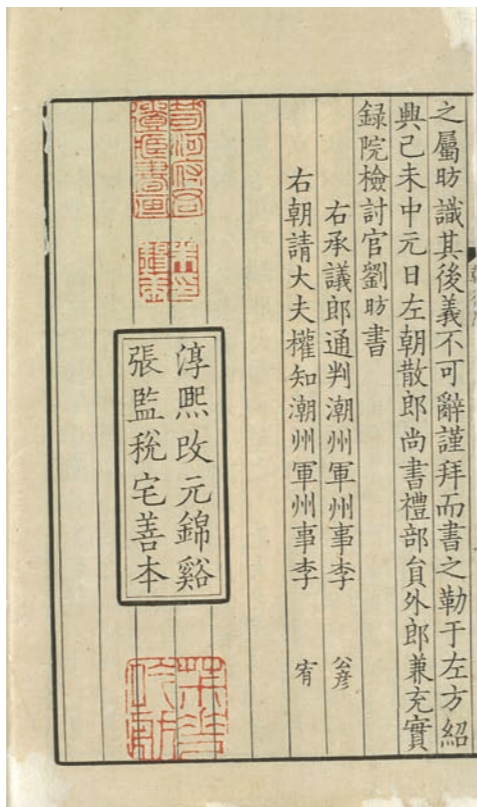 之屬昉識其後義不可辭謹拜而書之勒于左方紹
興己未中元日左朝散郎尚書禮部貟外郎兼充實
録院檢討官劉昉書
右承議郎通判潮州軍州事李 公彦
右朝請大夫權知潮州軍州事李 宥
淳熙改元錦谿
張監稅宅善本